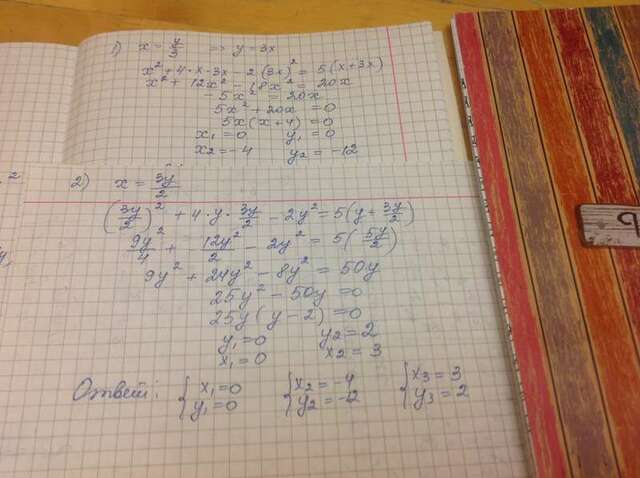 1) x = y/3 => y = 3x
x² + 4·x·3x - 2(3x)² = 5(x+3x)
x² + 12x² - 18x² = 20x
- 5x² = 20x
5x² + 20x = 0
5x(x+4) = 0
x₁ = 0 y₁ = 0
x₂ = -4 y₂ = -12
2) x = 3y/2
(3y/2)² + 4·y·3y/2 - 2y² = 5(y + 3y/2)
9y²/4 + 12y²/2 - 2y² = 5(5y/2)
9y² + 24y² - 8y² = 50y
25y² - 50y = 0
25y(y-2) = 0
y₁ = 0 y₂ = 2
x₁ = 0 x₂ = 3
Ответ: { x₁ = 0 { x₂ = -4 { x₃ = 3
y₁ = 0 y₂ = -12 y₃ = 2